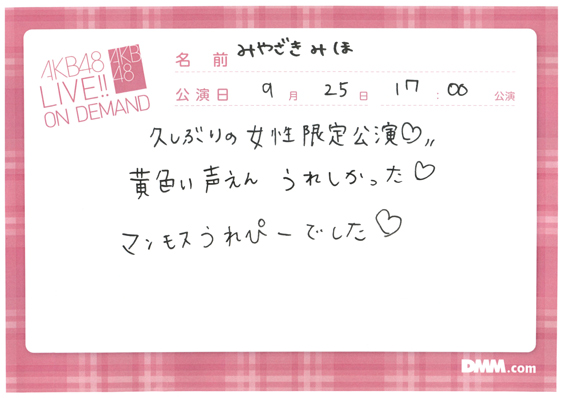 AKB48
LIVE!!
ON DEMAND
AKB
48
名前 みやざきみほ
公演日 9月25日 17:00 公演
久しぶりの女性限定公演♡〃
黄色い声えん うれしかった♡
マンモスうれぴーでした♡
DMM.com